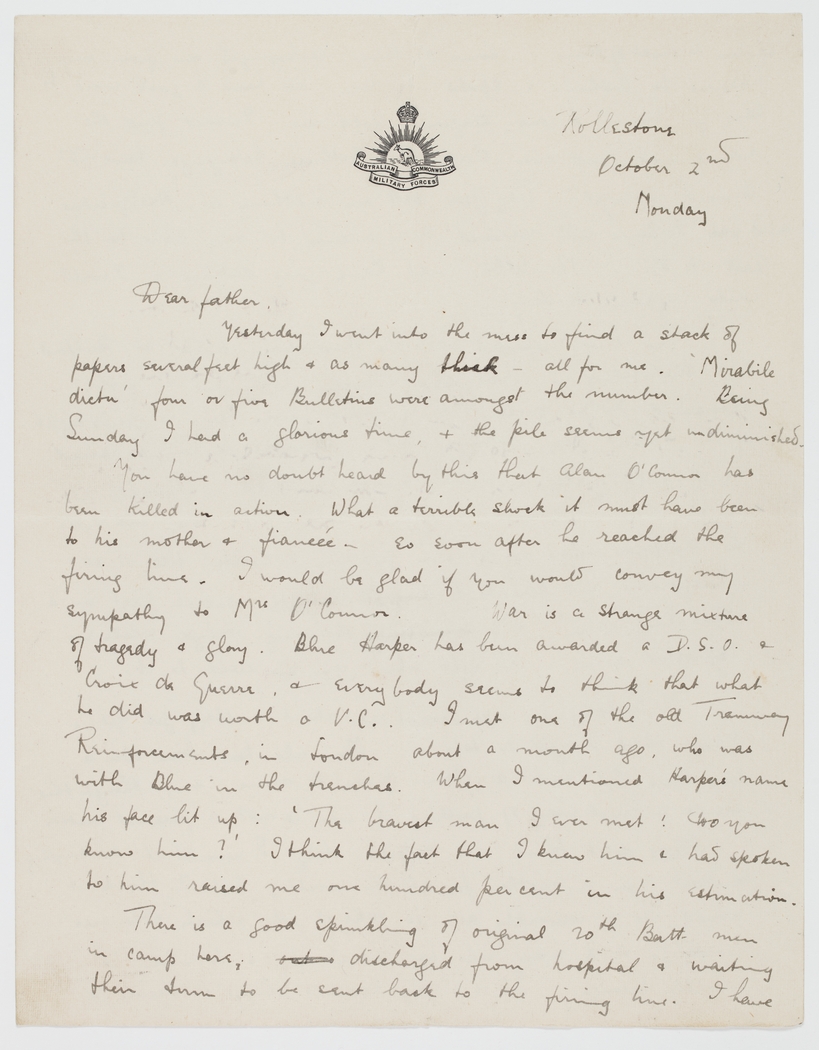 AUSTRALIAN COMMONWEALTH
MILITARY FORCES
Rollestone
October 2nd
Monday
Dear father.
Yesterday I went into the mess to find a stack of
papers several feet high & as many thick – all for me. 'Mirabile
dictu' four or five Bulletins were amongst the number. Being
Sunday I had a glorious time, & the pile seems yet undiminished.
You have no doubt heard by this that Alan O'Connor has
been killed in action. What a terrible shock it must have been
to his mother & fianceé – so soon after he reached the
firing line. I would be glad if you would convey my
sympathy to Mrs O'Connor. War is a strange mixture
of tragedy & glory. Blue Harper has been awarded a D.S.O. &
Croix de Guerre, & everybody seems to think that what
he did was worth a V.C.. I met one of the old Tramway
Reinforcements, in London about a month ago, who was
with Blue in the trenches. When I mentioned Harper's name
his face lit up: 'The bravest man I ever met! Do you
know him?' I think the fact that I knew him & had spoken
to him raised me one hundred per cent in his estimation.
There is a good sprinkling of original 20th Batt men
in camp here, discharged from hospital & waiting
their turn to be sent back to the firing line. I have